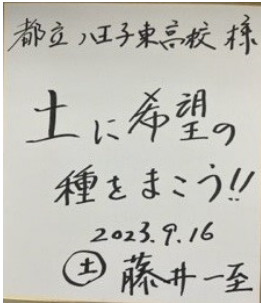 都立八王子東高校 様
土に希望の
種をまこう!!
2023.9.16
土 藤井一至